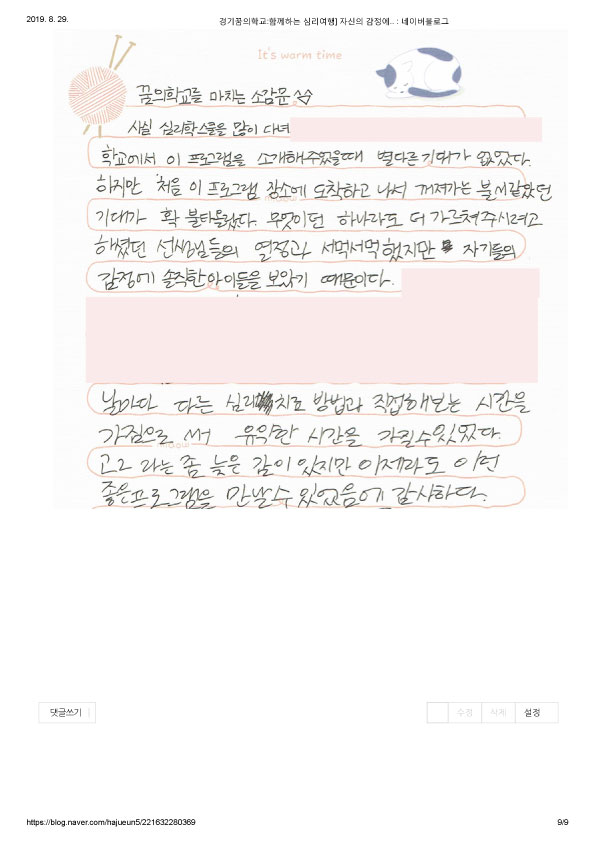 2019. 8. 29.
경기꿈의학교:함께하는 심리여행] 자신의 감정에.. : 네이버블로그
It's warm time
꿈의학교를 마치는 소감문
사실 심리학스쿨을 많이 다녀
학교에서 이 프로그램을 소개해주었을때 별다른 기대가 없었다.
하지만 처음 이 프로그램 장소에 도착하고 나서 꺼져가는 불씨같았던
기대가 확 불타올랐다. 무엇이던 하나라도 더 가르쳐주시려고
하셨던 선생님들의 열정과 서먹서먹했지만 자기들의
감정에 솔직한 아이들을 보았기 때문이다.
날마다 다른 심리치료 방법과 직접해보는 시간을
가짐으로 써 유익한 시간을 가질수있었다.
고2 라는 좀 늦은 감이 있지만 이제라도 이런
좋은프로그램을 만날수 있었음에 감사하다.
댓글쓰기
수정 삭제 설정
https://blog.naver.com/hajueun5/221632280369
9/9